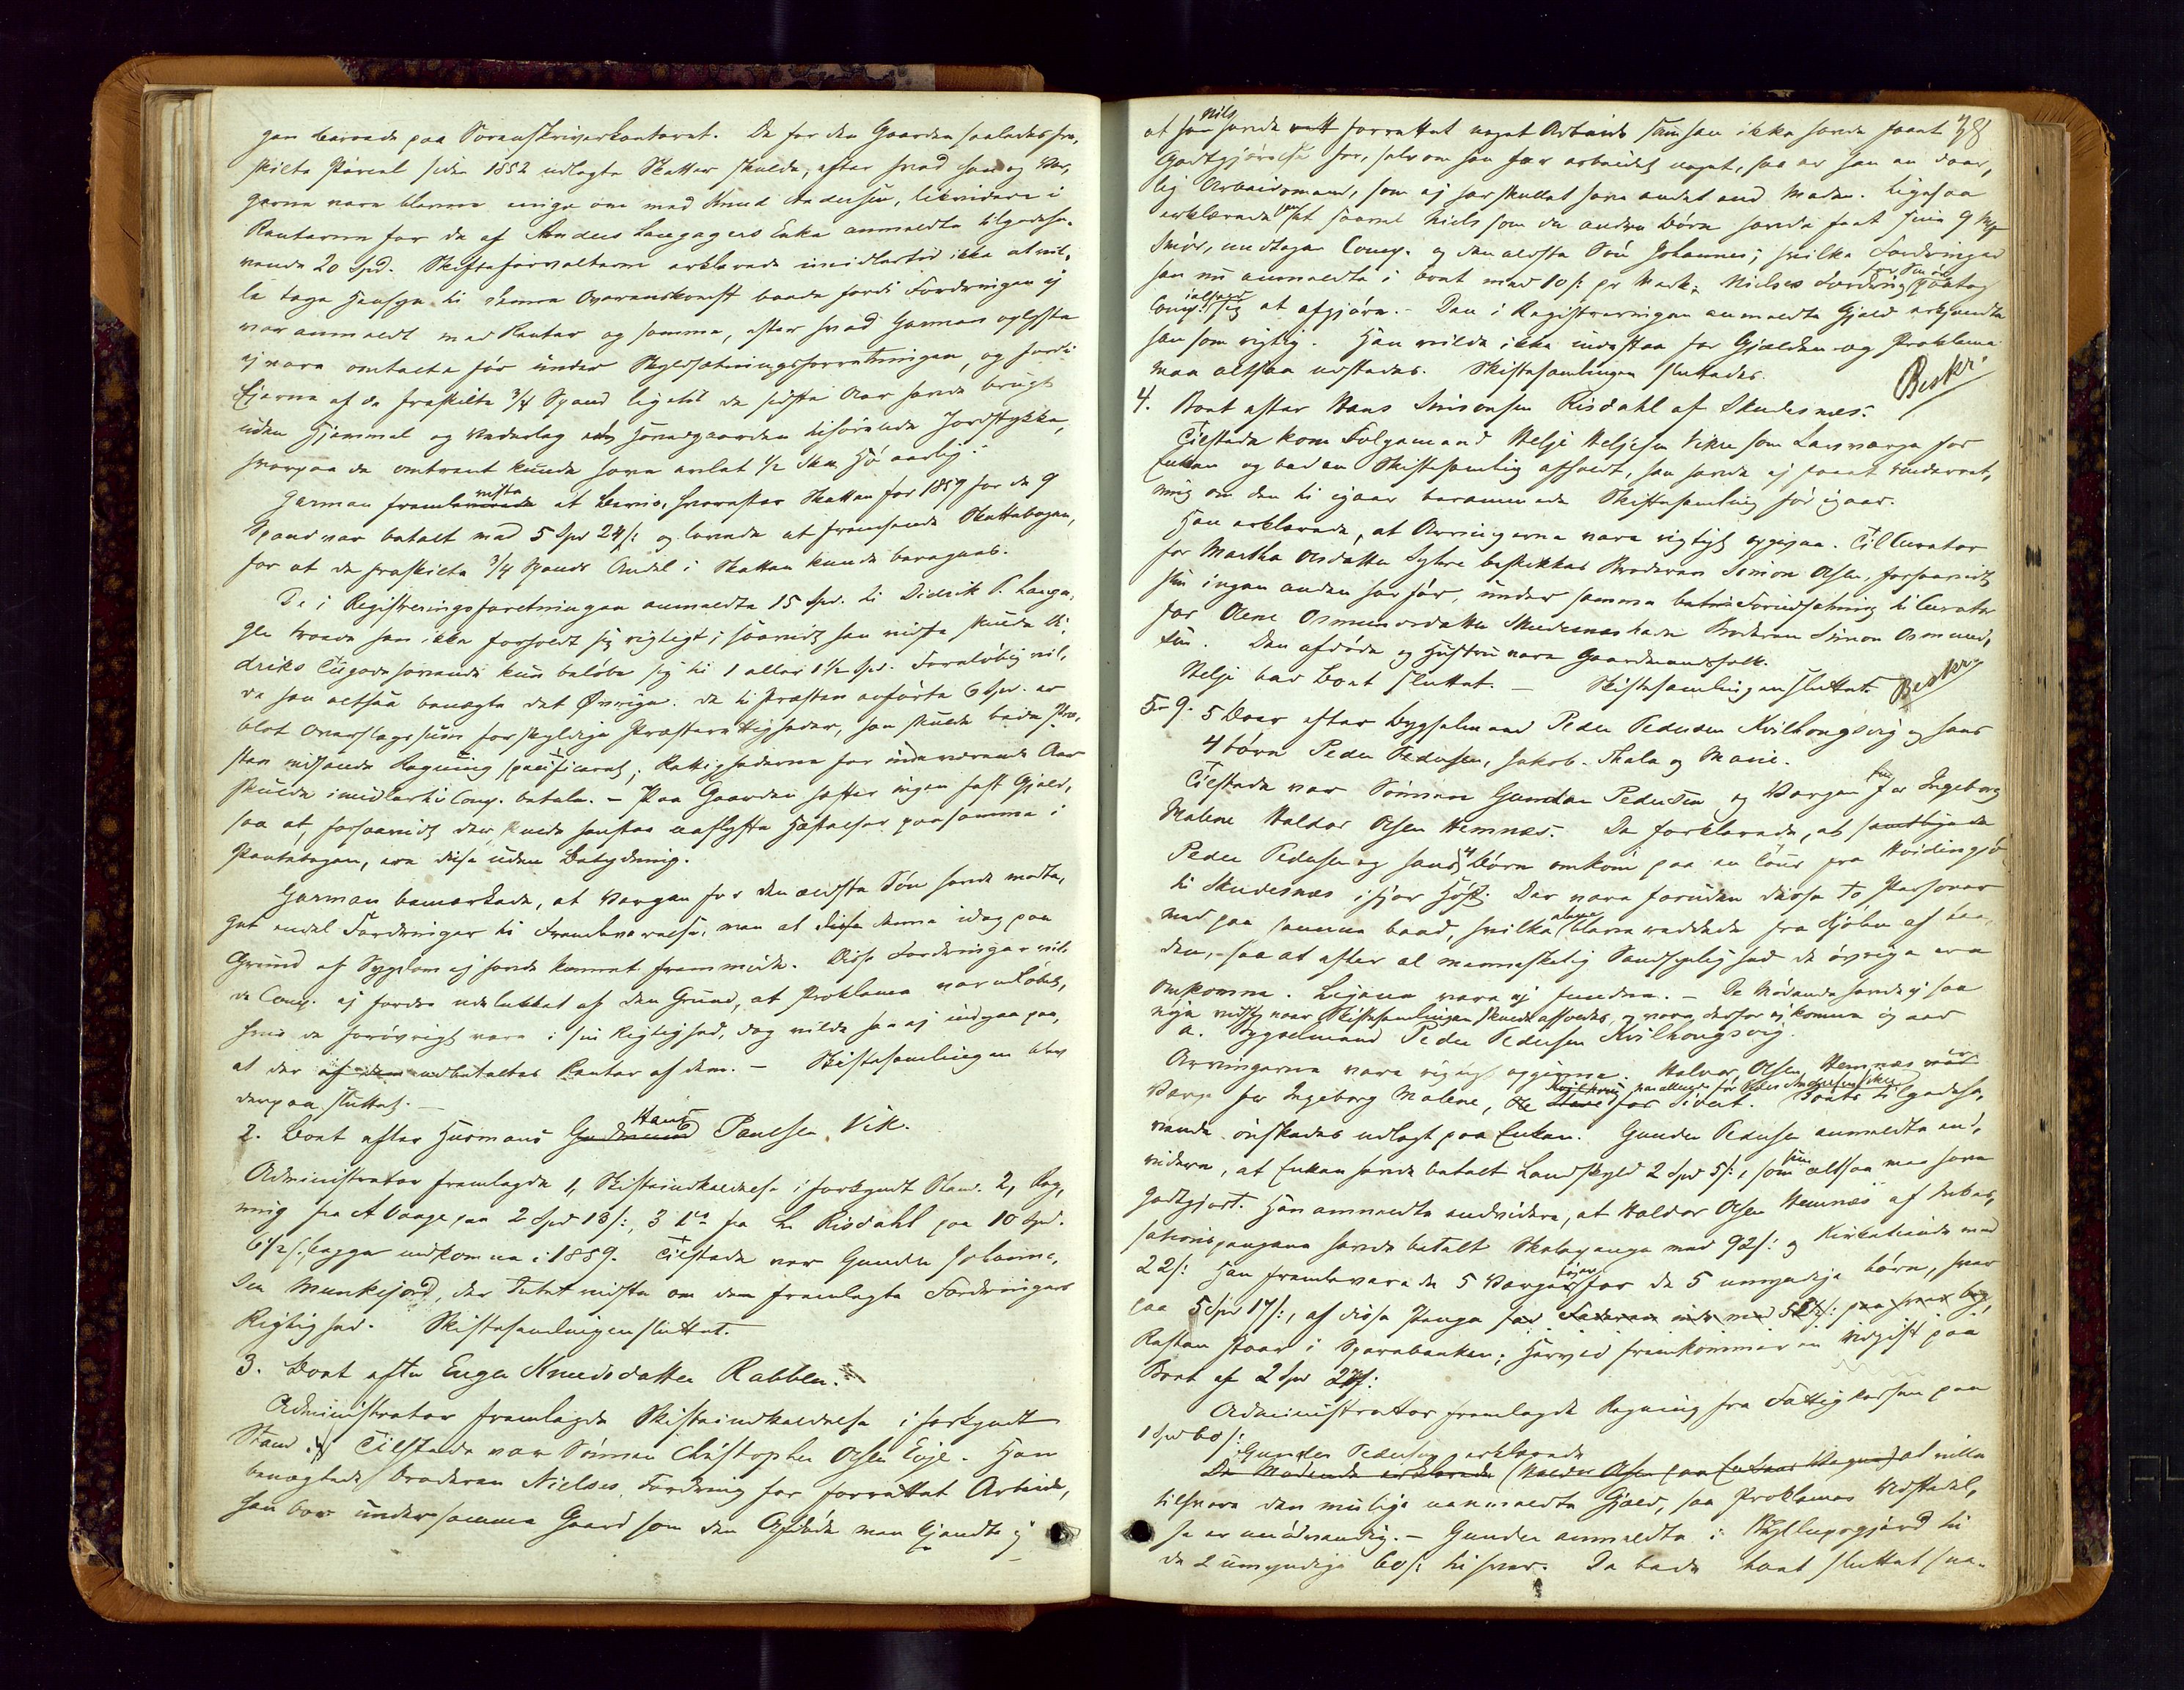 gen beroede paa Sorenskriverkontoret. De for den Gaarden saaledes fra-
skilte Parcel siden 1852 udlagte Skatter skulde, efter hvad han og Vær-
gerne vare blevne enige om med Knud Andersen, likvidere i
Renterne for de af Anders Langagers Enke anmeldte tilgodeha-
vende 20 Spd. Skifteforvalteren erklærede imidlertid ikke at vil-
le tage Hensyn til denne Overenskomst baade fordi Fordringen ej
var anmeldt med Renter og somme, efter hvad Garman oplyste
ej være omtalte før under Skyldsætningsforretningen, og fordi
Ejerne af de fraskilte 3/4 Spand ligetil de sidste Aar havde brugt
uden Hjemmel og Vederlag Hovedgaarden tilhørende Jordstykke,
hvorpaa de omtrent kunde have avlet 1/2 Hø aarlig.
Garman fremleverede viste at Bevis, hvorefter Skatten for 1859 for de 9
Spand var betalt med 5 Spd 24 s: og lovede at fremsende Skattebogen,
for at de fraskilte 3/4 Spands Andel i Skatten kunde beregnes.
De i Registreringsforretningen anmeldte 15 Spd. til Didrik P. Langa-
ger troede han ikke forholdt sig rigtigt; saavidt han vidste skulde Di-
driks Tilgodehavende kun beløbe sig til 1 eller 1 1/2 Spd. Foreløbig vil-
de han altsaa benægte det Øvrige. De til Præsten anførte 6 Spd. er
blot Overslagssum for skyldige Præsterettigheder, han skulde bede Præ-
sten indsende Regning specificeret; Rettighederne for indeværende Aar
skulde imidlertid Comp. betale. – Paa Gaarden hefter ingen fast Gjæld,
saa at, forsaavidt der skulde henstaa uaflyste Hæftelser paa samme i
Pantebogen, ere disse uden Betydning.
Garman bemærkede, at Værgen for den ældste Søn havde modta-
get endel Fordringer til Fremleverelse, men at disse denne idag paa
Grund af Sygdom ej havde kunnet fremmøde. Disse Fordringer vil-
de Comp. ej fordre udelukket af den Grund, at Proklama var udløbet,
hvis de forøvrigt vare i sin Rigtighed, dog vilde han ej indgaa paa,
at der af dem udbetaltes Renter af dem. – Skiftesamlingen blev
derpaa sluttet. –
2. Boet efter Husmand Gudmund Hans Paulsen Vik.
Administrator fremlagde 1, Skifteindkaldelse i forkyndt Stand. 2, Reg-
ning fra A Vaage paa 2 Spd 18 s:, 3 do fra L. Risdahl paa 10 Spd.
6 1/2 s:, begge indkomne i 1859. Tilstede var Gunder Johanne-
sen Munkejord, der Intet vidste om den fremlagte Fordringers
Rigtighed. Skiftesamlingen sluttet.
3. Boet efter Enger Knudsdatter Rabben.
Administrator fremlagde Skifteindkaldelse i forkyndt
Stand. Tilstede var Sønnen Christopher Olsen Eige. Han
benægtede Broderen Nielses Fordring for forrettet Arbeide,
han bor under samme Gaard som den Afdøde men kjendte ej
at han Nils havde forrettet noget Arbeide som han ikke havde faaet 38
Godtgjørelse for, selv om han har arbeidet noget, saa er han en daar-
lig Arbeidsmand, som ej har skullet have andet end Maden. Ligesaa
erklærede han at saavel Niels som de andre Børn havde faaet sine 9
Smør, undtagen Comp. og den ældste Søn Johannes; hvilke Fordringer
han nu anmeldte i boet med 10 s: pr Mark; Nielses Fordring for Smør paatog
Comp. ialfald sig at afgjøre. – Den i Registreringen anmeldte Gjæld erkjendte
han som rigtig. Han vilde ikke indestaa for Gjælden og Proklama
maa altsaa udstedes. Skiftesamlingen sluttedes. Beskr
4. Boet efter Hans Simonsen Risdahl af Skudesnes.
Tilstede kom Følgemand Helje Heljesen Vikre som Laugværge for
Enken og bad en Skiftesamling afholdt, han havde ej faaet Underret-
ning om den til igaar berammede Skiftesamling før igaar.
Han erklærede, at Arvingerne vare rigtigt opgivne. Til Curator
for Martha Olsdatter Syhre beskikkes Broderen Simon Olsen, forsaavidt
hun ingen anden har før, under samme betin Forudsætning til Curator
for Anne Osmundsdatter Skudesnes hendes Broderen Simon Osmund-
sen. Den afdøde og Hustru vare Gaardmandsfolk.
Helje bad Boet sluttet. – Skiftesamlingen sluttet. Beskr
5–9. 5 Boer efter Bygselmand Peder Pedersen Kvilhougsvig og hans
4 børn Peder Pedersen, Jakob. Thala og Marie.
Tilstede var Sønnen Gunder Pedersen og Værgen for Ingeborg
Malene Haldor Olsen Hemnæs. De forklarede, at samtlige de
Peder Pedersen og hans 4 Børn omkom paa en Tour fra Hvidingsø
til Skudesnes ifjor Høst. Der vare foruden disse to Personer
med paa samme baad, hvilke alene bleve reddede fra Kjølen af Baa-
den, – saa at efter al menneskelig Sandsynlighed de øvrige ere
omkomne. Ligene vare ej fundne. – De Mødende havde ej saa
nøje vidst naar Skiftesamlingen skulde afholdes, og vare derfor ej komne og aar
a. Bygselmand Peder Pedersen Kvilhougsvig.
Arvingerne vare rigtigt opgivne. Halvor Olsen Hemnæs var
Værge for Ingeborg Malene, Sidert. Boets tilgodeha-
vende ønskedes udlagt paa Enken. Gunder Pedersen anmeldte end-
videre, at Enken havde betalt Landskyld 2 Spd 5 s:, som hun altsaa maa have
godtgjort. Han anmeldte endvidere, at Haldor Olsen Hemnæs af Auka-
tionspengene havde betalt Skolepenge med 92 s: og Kirketiende med
22 s: Han fremleverede 5 Vergebøger for de 5 umyndige børn, hver
paa 5 Spd 17 s:, af disse Penge
Resten staar i Sparebanken; Herved fremkommer en Udgift paa
Boet af 2 Spd 27 s:
Administrator fremlagde Regning fra Fattigkassen paa
1 Spd 60 s:
Gunder Pedersen erklærede
De Mødende erklærede (Haldor Olsen paa Enkens Vegne) at ville
tilsvare den mulige uanmeldte Gjæld, saa Proklamas Udstedel-
se er unødvendig. – Gunder anmeldte i Bryllupsgjærd til
de 2 umyndige 60 s: til hver. De bade boet sluttet sna-